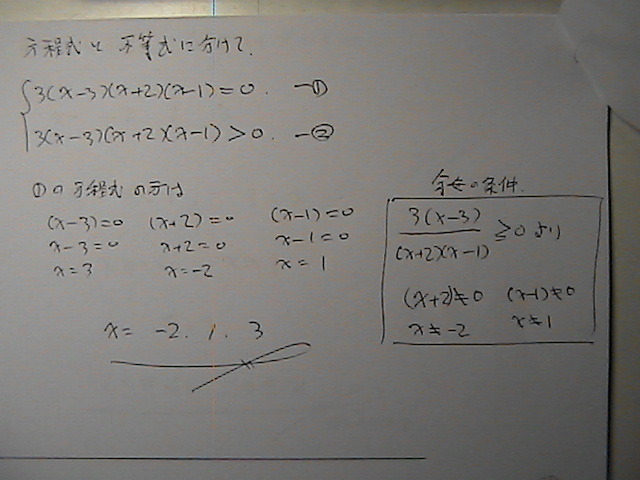 方程式と不等式に分けて.
3(x-3)(x+2)(x-1)=0. —①
3(x-3)(x+2)(x-1)>0. —②
①の方程式の方は
(x-3)=0 (x+2)=0 (x-1)=0
x-3=0 x+2=0 x-1=0
x=3 x=-2 x=1
x= -2. 1. 3
分母の条件.
3(x-3)/(x+2)(x-1) ≧0 より
(x+2)≠0 (x-1)≠0
x≠-2 x≠1